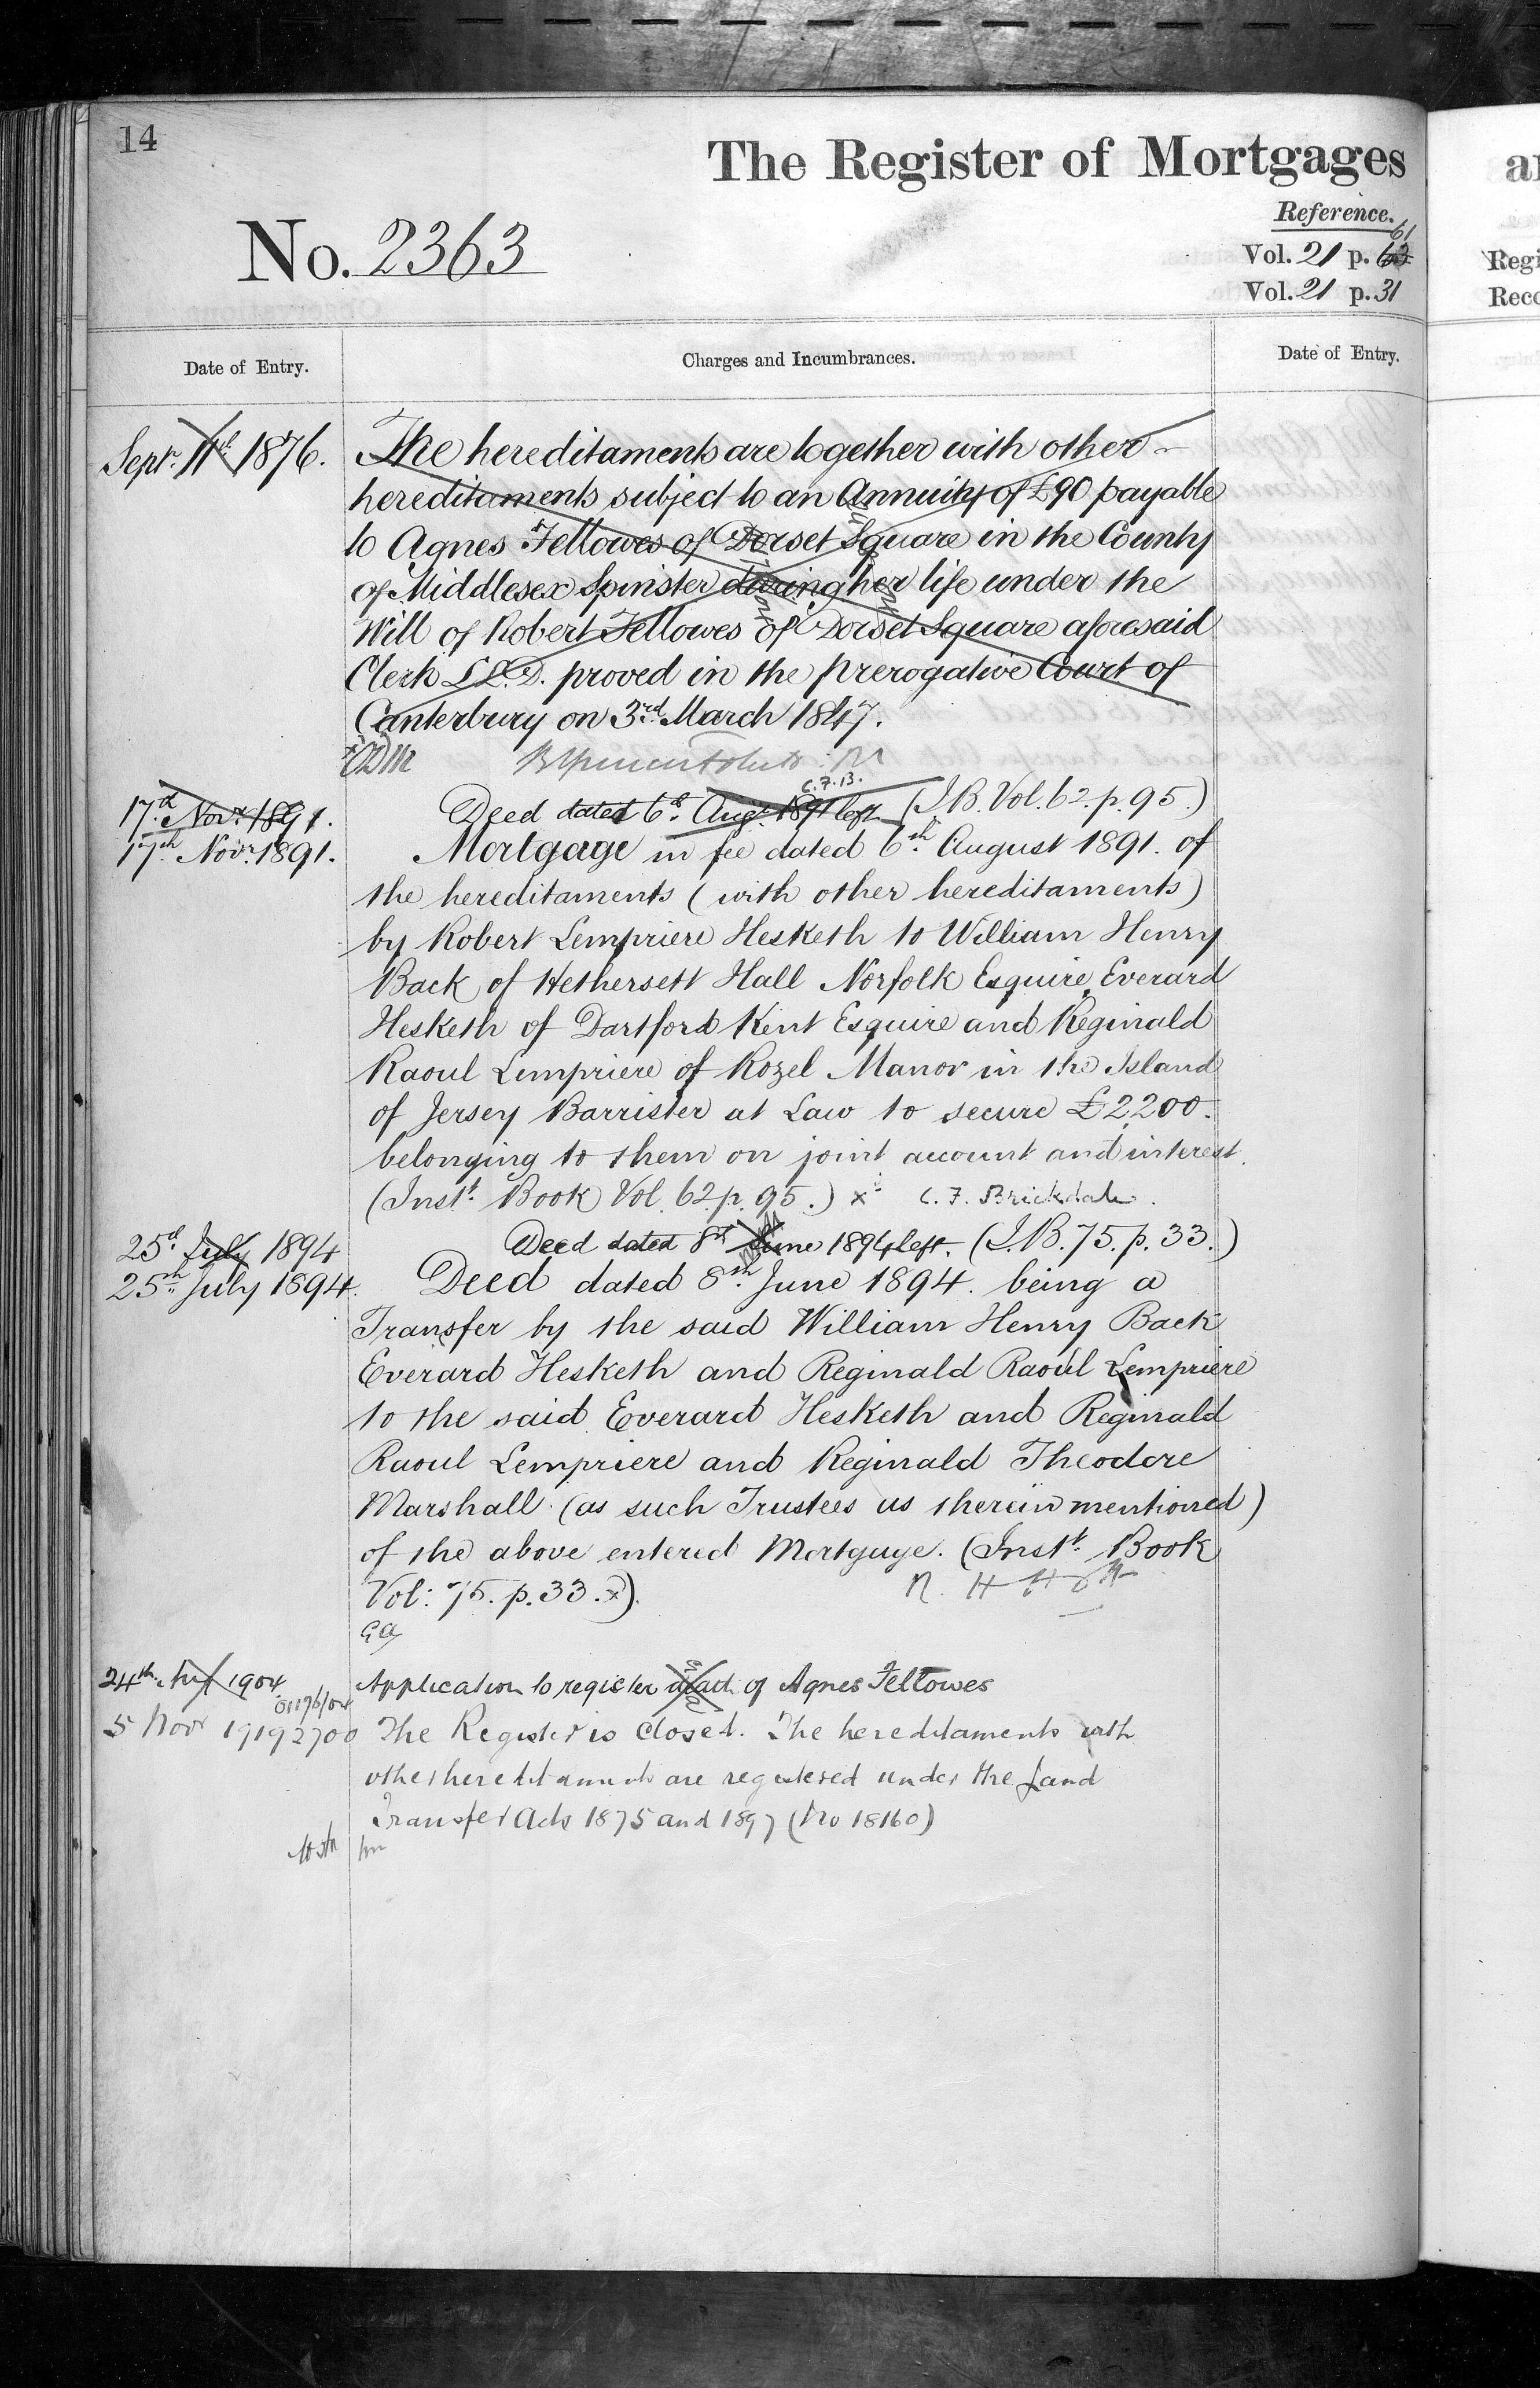 14
The Register of Mortgages
Reference.
61
Vol. 21 p. 62
Vol. 21 p. 31
No. 2363
Date of Entry.
Charges and Incumbrances.
Date of Entry.
Sept. 11th 1876.
The hereditaments are together with other
hereditaments subject to an Annuity of £90 payable
to Agnes Fellowes of Dorset Square in the County
of Middlesex Spinster during her life under the
Will of Robert Fellowes of Dorset Square aforesaid
Clerk LL.D. proved in the Prerogative Court of
Canterbury on 3rd March 1847.
C.F.B.
17d. Novr. 1891.
Deed dated 6d. Augt. 1891 left (I.B. Vol. 62. p. 95.)
17th Novr. 1891.
Mortgage in fee dated 6th August 1891. of
the hereditaments (with other hereditaments)
by Robert Lempriere Hesketh to William Henry
Back of Hethersett Hall Norfolk Esquire, Everard
Hesketh of Dartford Kent Esquire and Reginald
Raoul Lempriere of Rozel Manor in the Island
of Jersey Barrister at Law to secure £2200.
belonging to them on joint account and interest.
(Inst. Book Vol. 62. p. 95.) x C. F. Brickdale.
25d. July 1894
Deed dated 8d. June 1894 left. (I.B. 75. p. 33.)
25th July 1894.
Deed dated 8th June 1894. being a
Transfer by the said William Henry Back
Everard Hesketh and Reginald Raoul Lempriere
to the said Everard Hesketh and Reginald
Raoul Lempriere and Reginald Theodore
Marshall (as such Trustees as therein mentioned)
of the above entered Mortgage. (Inst. Book
Vol: 75. p. 33. x).
24th 1904
Application to register death of Agnes Fellowes
5 Novr 1919
The Register is closed. The hereditaments with
other hereditaments are registered under the Land
Transfer Acts 1875 and 1897 (No 18160)
ar
Regi
Reco